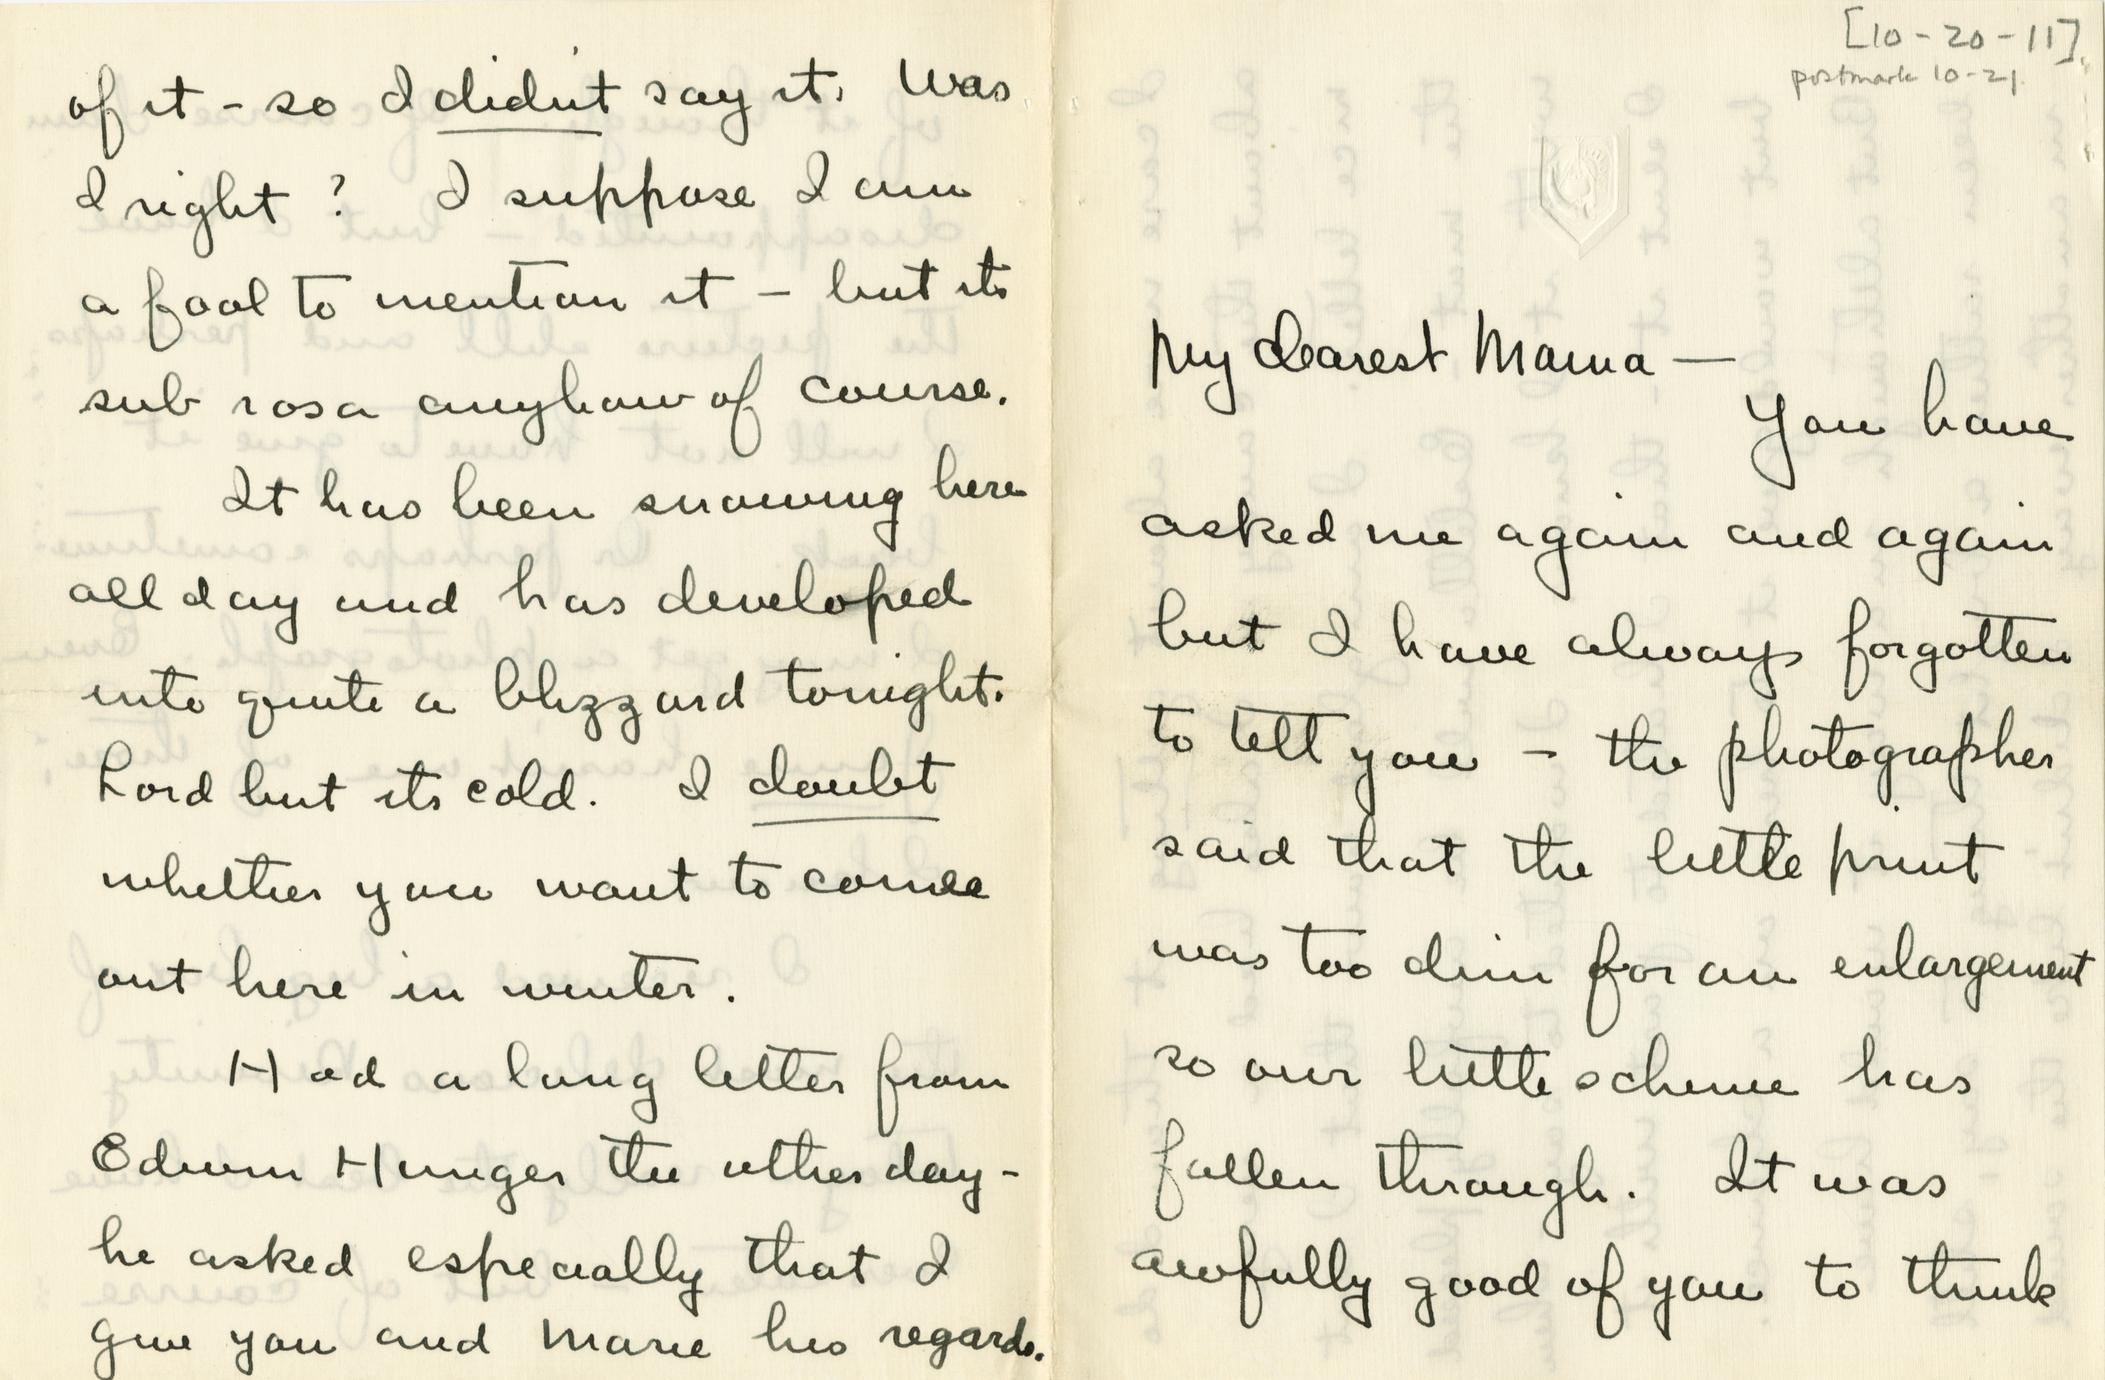 [10-20-11]
postmark 10-21
My dearest Mama —
You have
asked me again and again
but I have always forgotten
to tell you — the photographer
said that the little print
was too dim for an enlargement
so our little scheme has
fallen through. It was
awfully good of you to think
of it - so I didn't say it. Was
I right? I suppose I am
a fool to mention it — but its
sub rosa anyhow of course.
It has been snowing here
all day and has developed
into quite a blizzard tonight.
Lord but its cold. I doubt
whether you want to come
out here in winter.
Had a long letter from
Edwin Hunger the other day -
he asked especially that I
give you and Marie his regards.